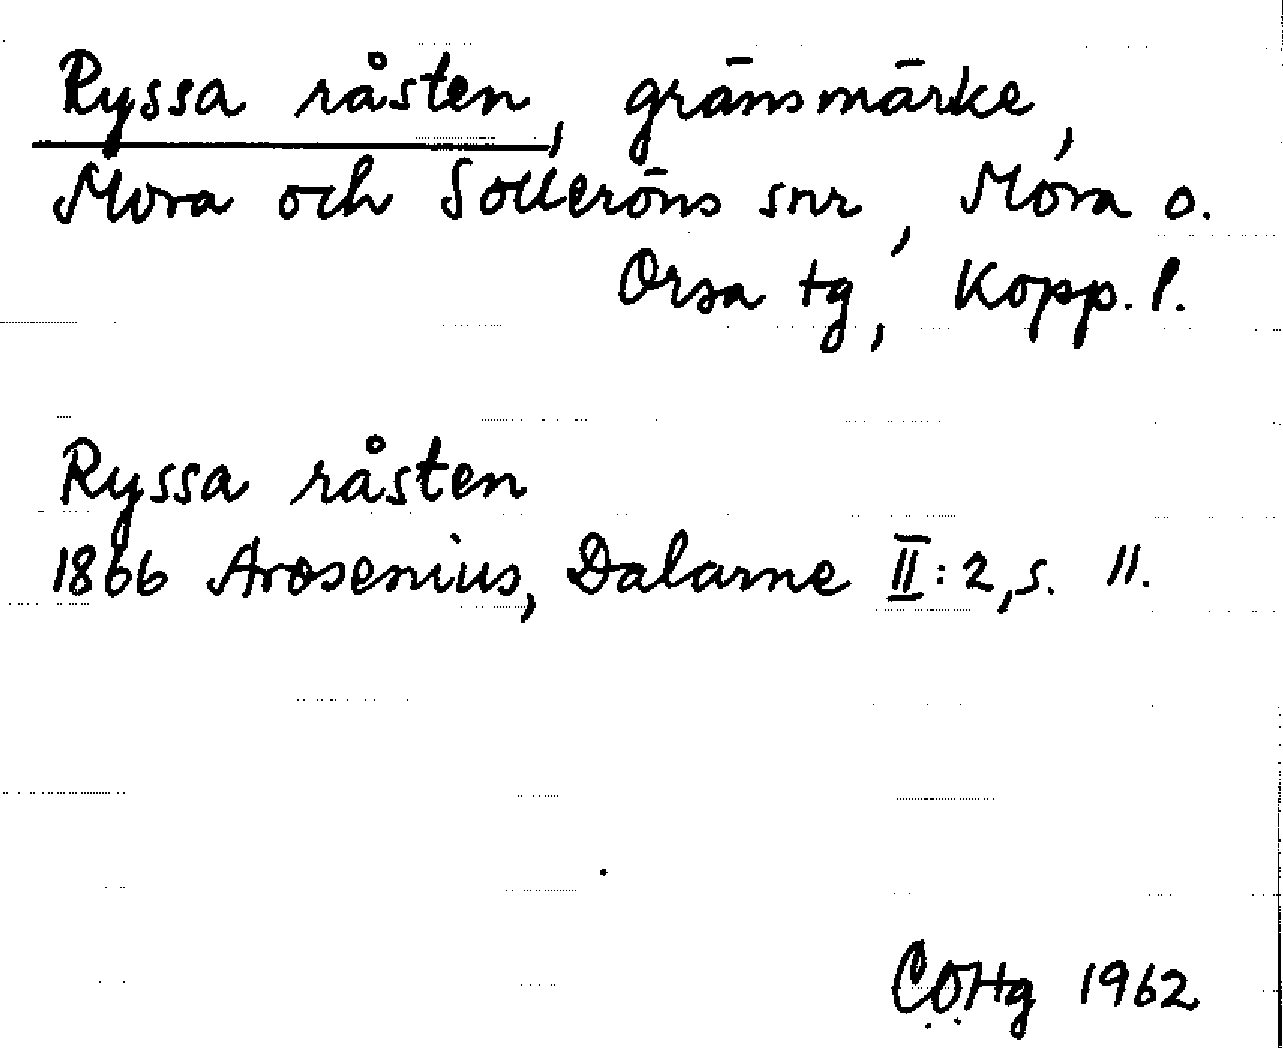 Ryssa råsten, gränsmärke,
Mora och Solleröns snr, Mora o.
Orsa tg, Kopp. l.
Ryssa råsten
1866 Arosenius, Dalarne II:2, s. 11.
COHg 1962